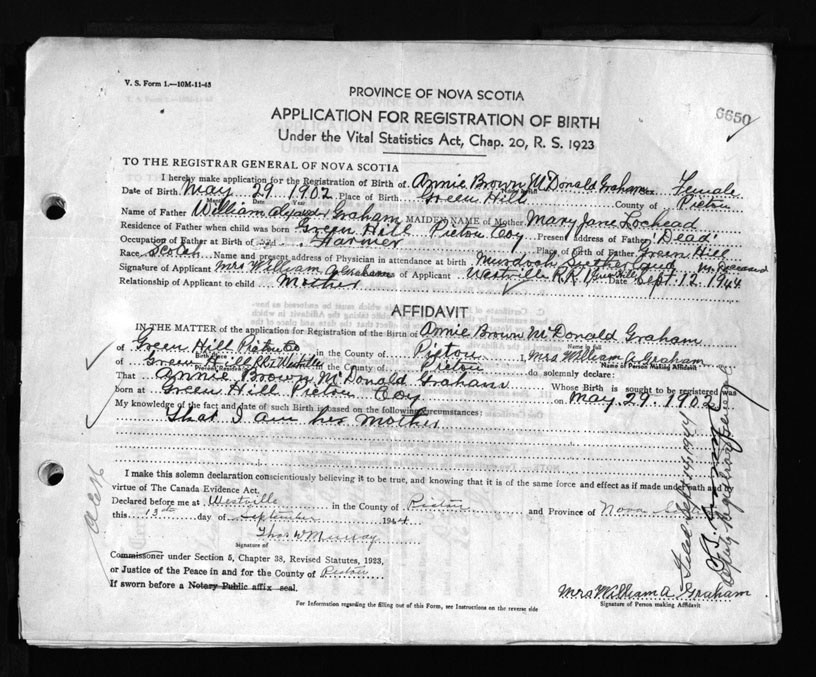 V. S. Form 1.—10M-11-43
PROVINCE OF NOVA SCOTIA
6650
APPLICATION FOR REGISTRATION OF BIRTH
Under the Vital Statistics Act, Chap. 20, R. S. 1923
TO THE REGISTRAR GENERAL OF NOVA SCOTIA
I hereby make application for the Registration of Birth of Annie Brown McDonald Graham Female
Date of Birth May 29 1902 Place of Birth Green Hill County of Pictou
Name of Father William Graham MAIDEN NAME of Mother Mary Jane Lochead
Residence of Father when child was born Green Hill Pictou Coy Present address of Father Dead
Occupation of Father at Birth of Farmer Place of Birth of Father Green Hill
Race Scotch Name and present address of Physician in attendance at birth Murdoch Sutherland
Signature of Applicant Mrs William A Graham of Applicant Westville R.R.1 Date Sept. 12 1944
Relationship of Applicant to child Mother
AFFIDAVIT
IN THE MATTER of the application for Registration of the Birth of Annie Brown McDonald Graham
of Green Hill Pictou Co in the County of Pictou I Mrs William A Graham
Birth Place Name of Person Making Affidavit
of Green Hill Westville the County of Pictou do solemnly declare:
That Annie Brown McDonald Graham Whose Birth is sought to be registered was
born at Green Hill Pictou Coy on May 29. 1902
My knowledge of the fact and date of such Birth is based on the following circumstances:
That I am her mother
I make this solemn declaration conscientiously believing it to be true, and knowing that it is of the same force and effect as if made under oath and
virtue of The Canada Evidence Act.
Declared before me at Westville in the County of Pictou and Province of Nova
this 13th day of September 1944
Thos W Murray
Signature of
Commissoner under Section 5, Chapter 38, Revised Statutes, 1923,
or Justice of the Peace in and for the County of Pictou
If sworn before a Notary Public affix seal.
Mrs William A Graham
For Information regarding the filling out of this Form, see Instructions on the reverse side
Signature of Person making Affidavit